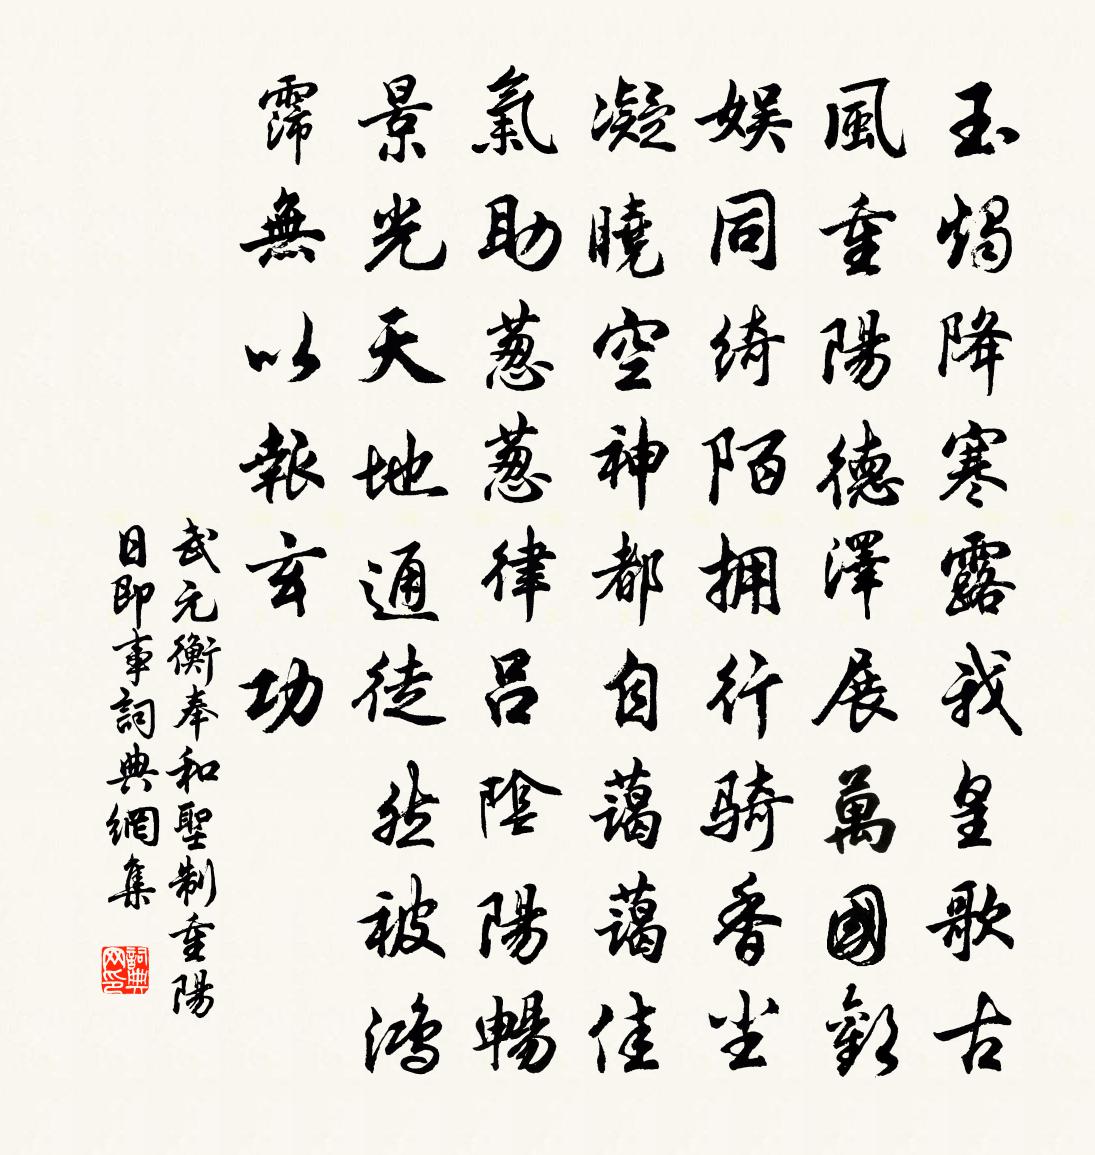 玉燭降寒露我皇歌古
風重陽德澤展萬國歡
娱同綺陌拥行騎香塵
凝曉空神都自藹藹佳
氣助葱葱律呂陰陽暢
景光天地通徒然被鴻
霈無以報玄功
武元衡奉和聖制重陽
日即事詞典網集
詞典网印